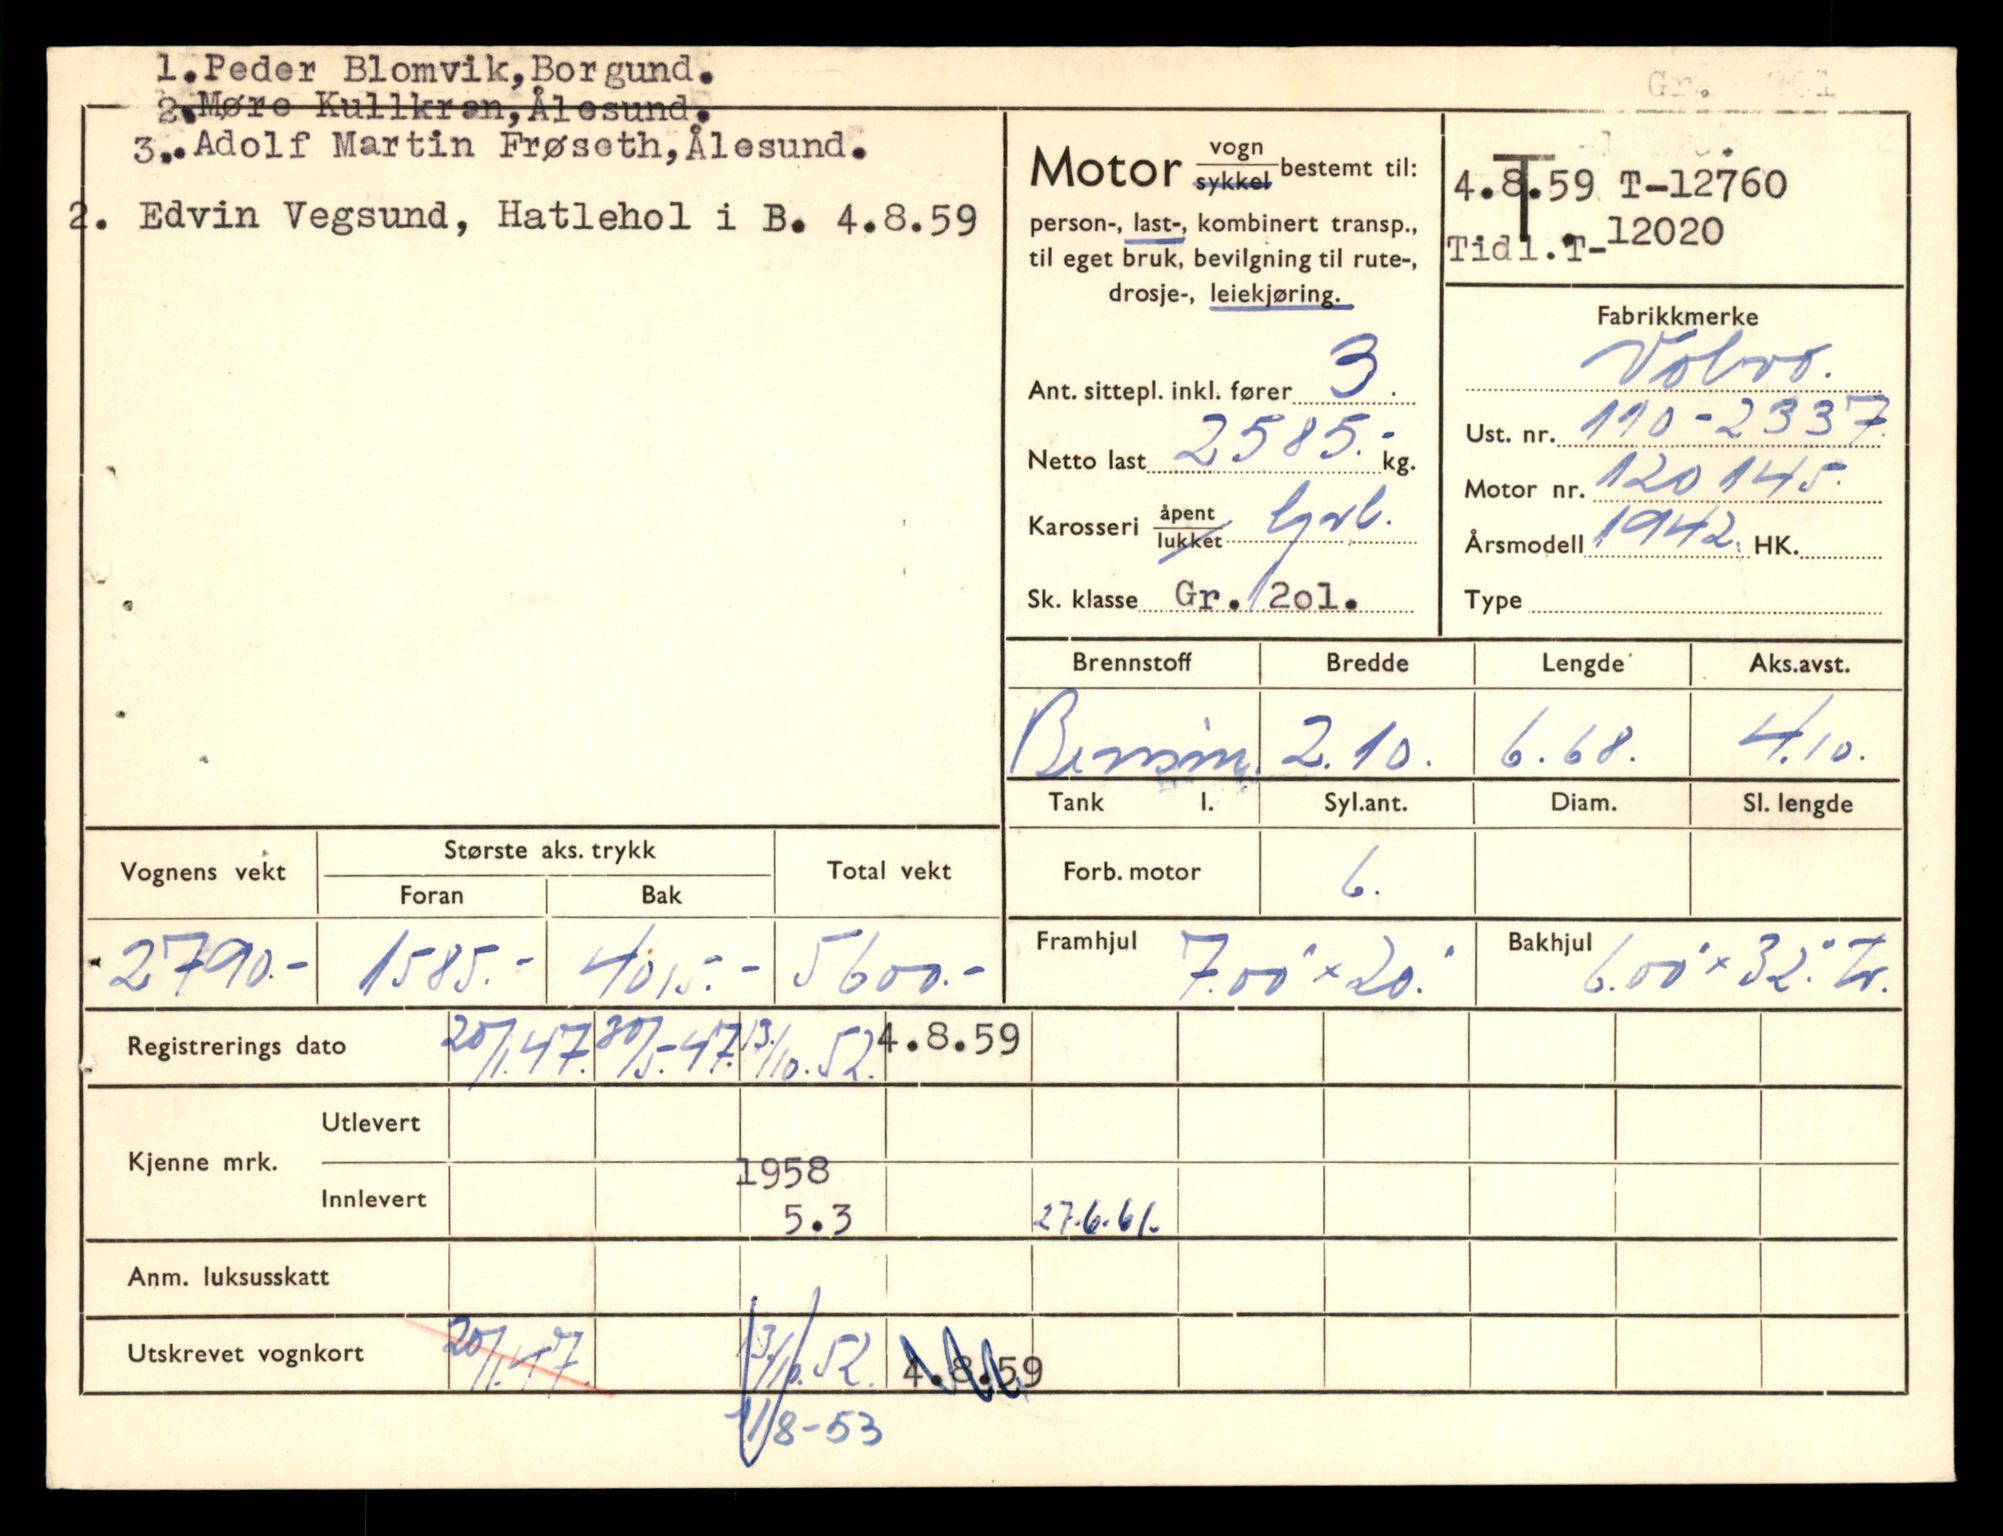 1.Peder Blomvik,Borgund.
2.Møre Kullkran,Ålesund.
3..Adolf Martin Frøseth,Ålesund.
2. Edvin Vegsund, Hatlehol i B. 4.8.59
Motor vogn
sykkel bestemt til:
person-, last-, kombinert transp.,
til eget bruk, bevilgning til rute-,
drosje-, leiekjøring.
Ant. sittepl. inkl. fører 3.
Netto last 2585.- kg.
Karosseri åpent
lukket
Sk. klasse Gr. 2o1.
T
4.8.59 T-12760
Tidl.T-12020
Fabrikkmerke
Volvo.
Ust. nr. 110-2337
Motor nr. 120145.
Årsmodell 1942. HK.
Type
Brennstoff Bredde Lengde Aks.avst.
Bensin. 2.10. 6.68. 4.10.
Tank l. Syl.ant. Diam. Sl. lengde
Forb. motor 6.
Framhjul 7.00" x 20." Bakhjul 6.00" x 32." Tv.
Vognens vekt Største aks. trykk Total vekt
Foran Bak
2790.- 1585.- 4015.- 5600.-
Registrerings dato 20/1.47. 30/5-47. 13./10.52. 4.8.59
Kjenne mrk. Utlevert
Innlevert 1958
5.3 27.6.61.
Anm. luksusskatt
Utskrevet vognkort 20/1.47. 13/10.52. 4.8.59
11/8-53